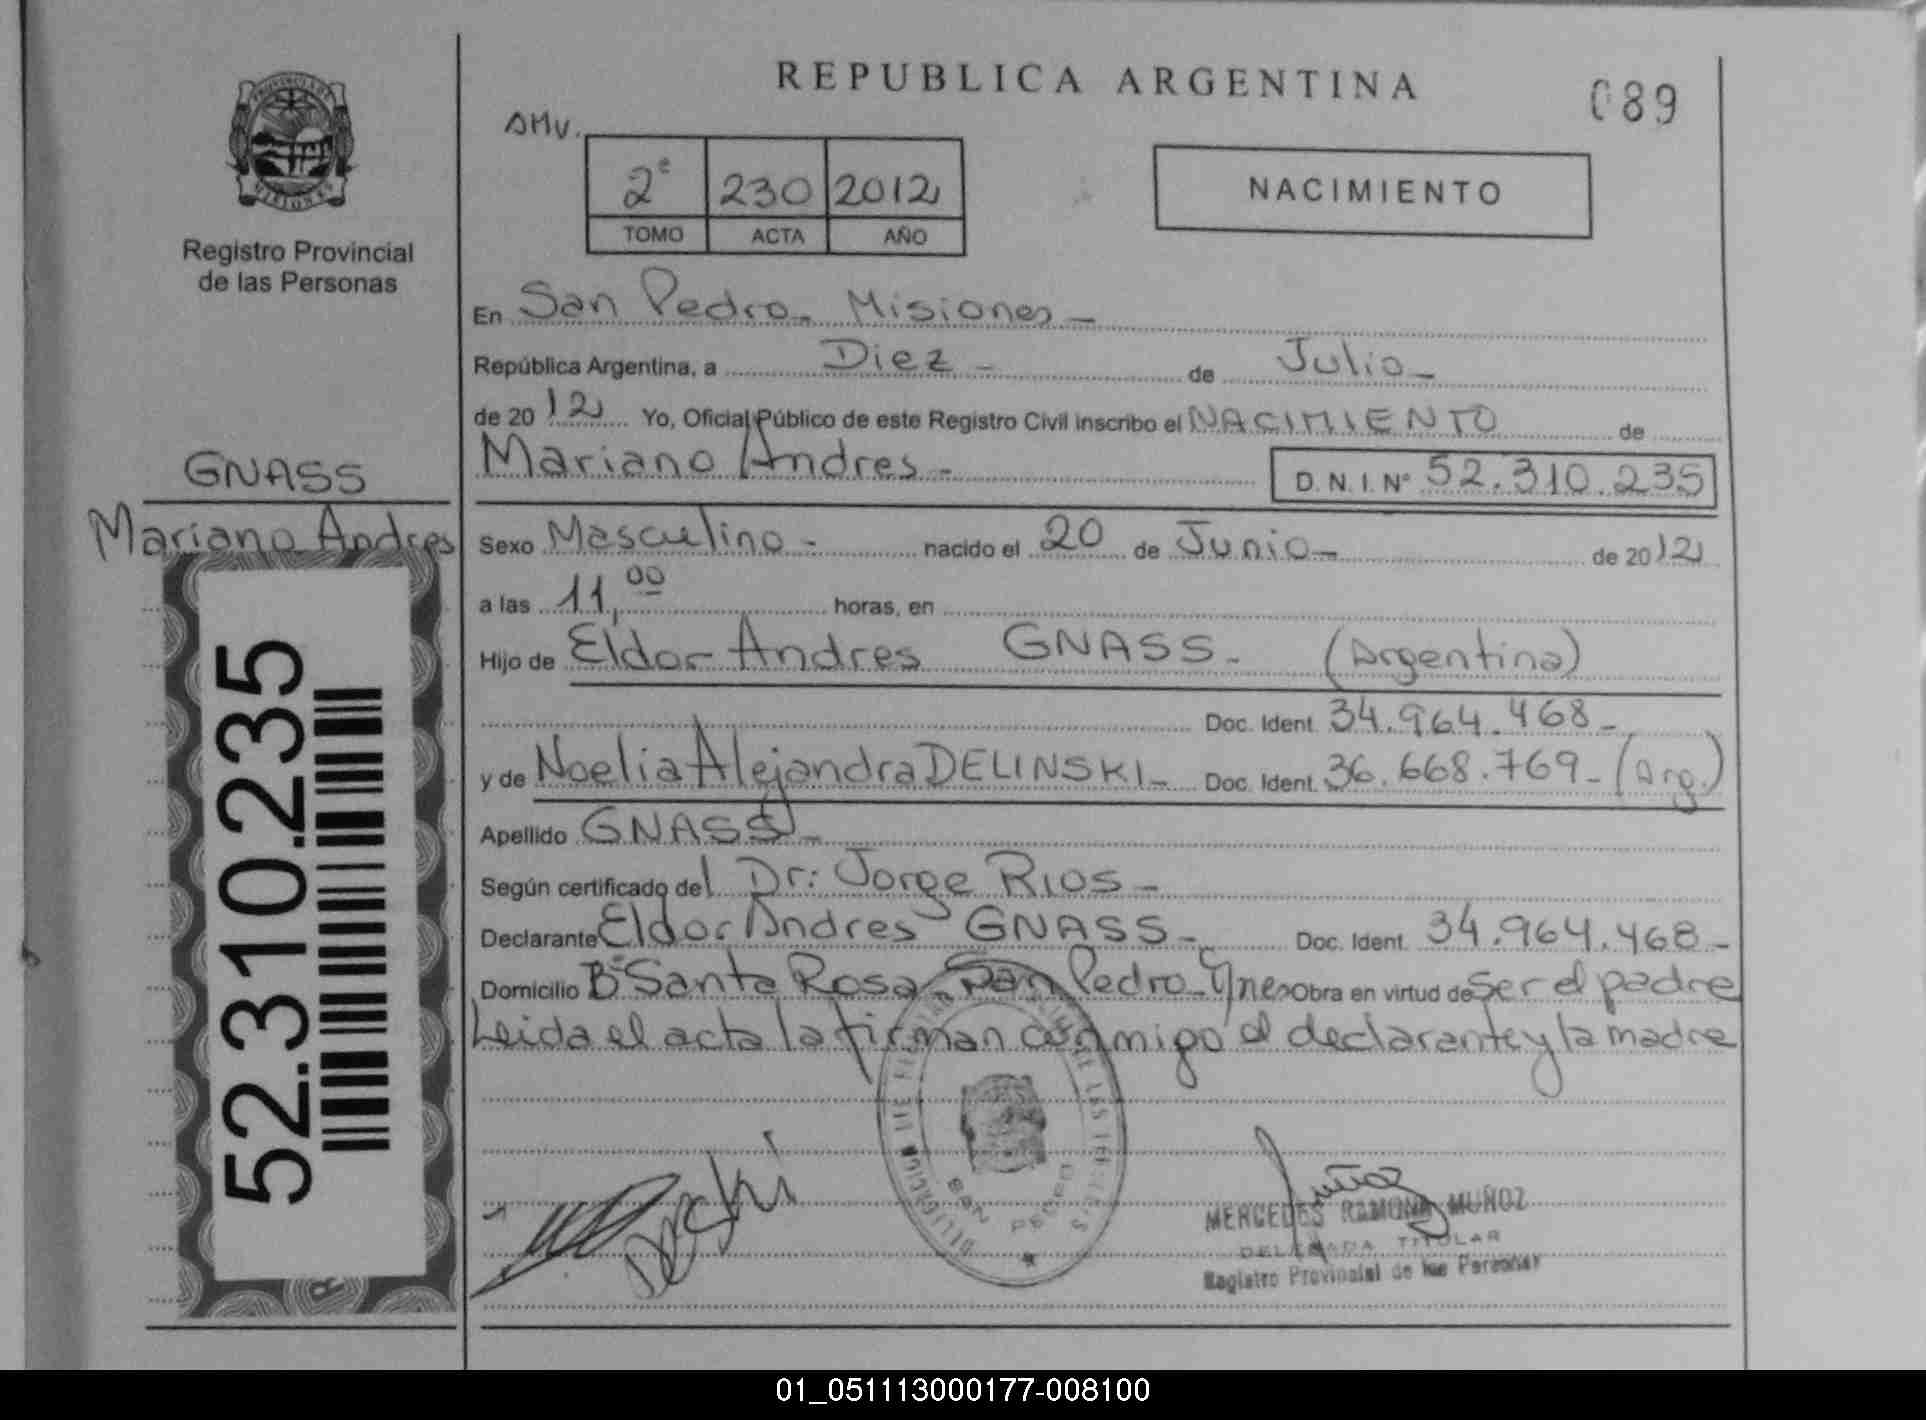 REPUBLICA ARGENTINA
089
PROVINCIA DE MISIONES
Registro Provincial
de las Personas
AMV.
2º 230 2012
TOMO ACTA AÑO
NACIMIENTO
En San Pedro - Misiones -
República Argentina, a Diez - de Julio -
de 2012 Yo, Oficial Público de este Registro Civil inscribo el NACIMIENTO de
Mariano Andres - D.N.I.Nº 52.310.235
GNASS
Mariano Andres
Sexo Masculino - nacido el 20 de Junio - de 2012
a las 11,00 horas, en
Hijo de Eldor Andres GNASS - (Argentina)
Doc. Ident. 34.964.468 -
y de Noelia Alejandra DELINSKI - Doc. Ident. 36.668.769 - (Arg.)
Apellido GNASS -
Según certificado del Dr: Jorge RIOS -
Declarante Eldor Andres GNASS - Doc. Ident. 34.964.468 -
Domicilio Bº Santa Rosa - San Pedro - Mnes Obra en virtud de ser el padre
Leida el acta la firman conmigo el declarante y la madre
52.310.235
SAN PEDRO
Muñoz
MERCEDES RAMONA MUÑOZ
DELEGADA TITULAR
Registro Provincial de las Personas
01_051113000177-008100